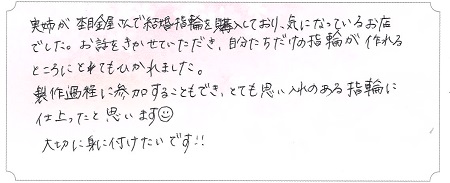 実姉が杢目金屋さんで結婚指輪を購入しており、気になっているお店
でした。お話をきかせていただき、自分たちだけの指輪が作れる
ところにとてもひかれました。
製作過程に参加することもでき、とても思い入れのある指輪に
仕上ったと思います☺
大切に身に付けたいです!!